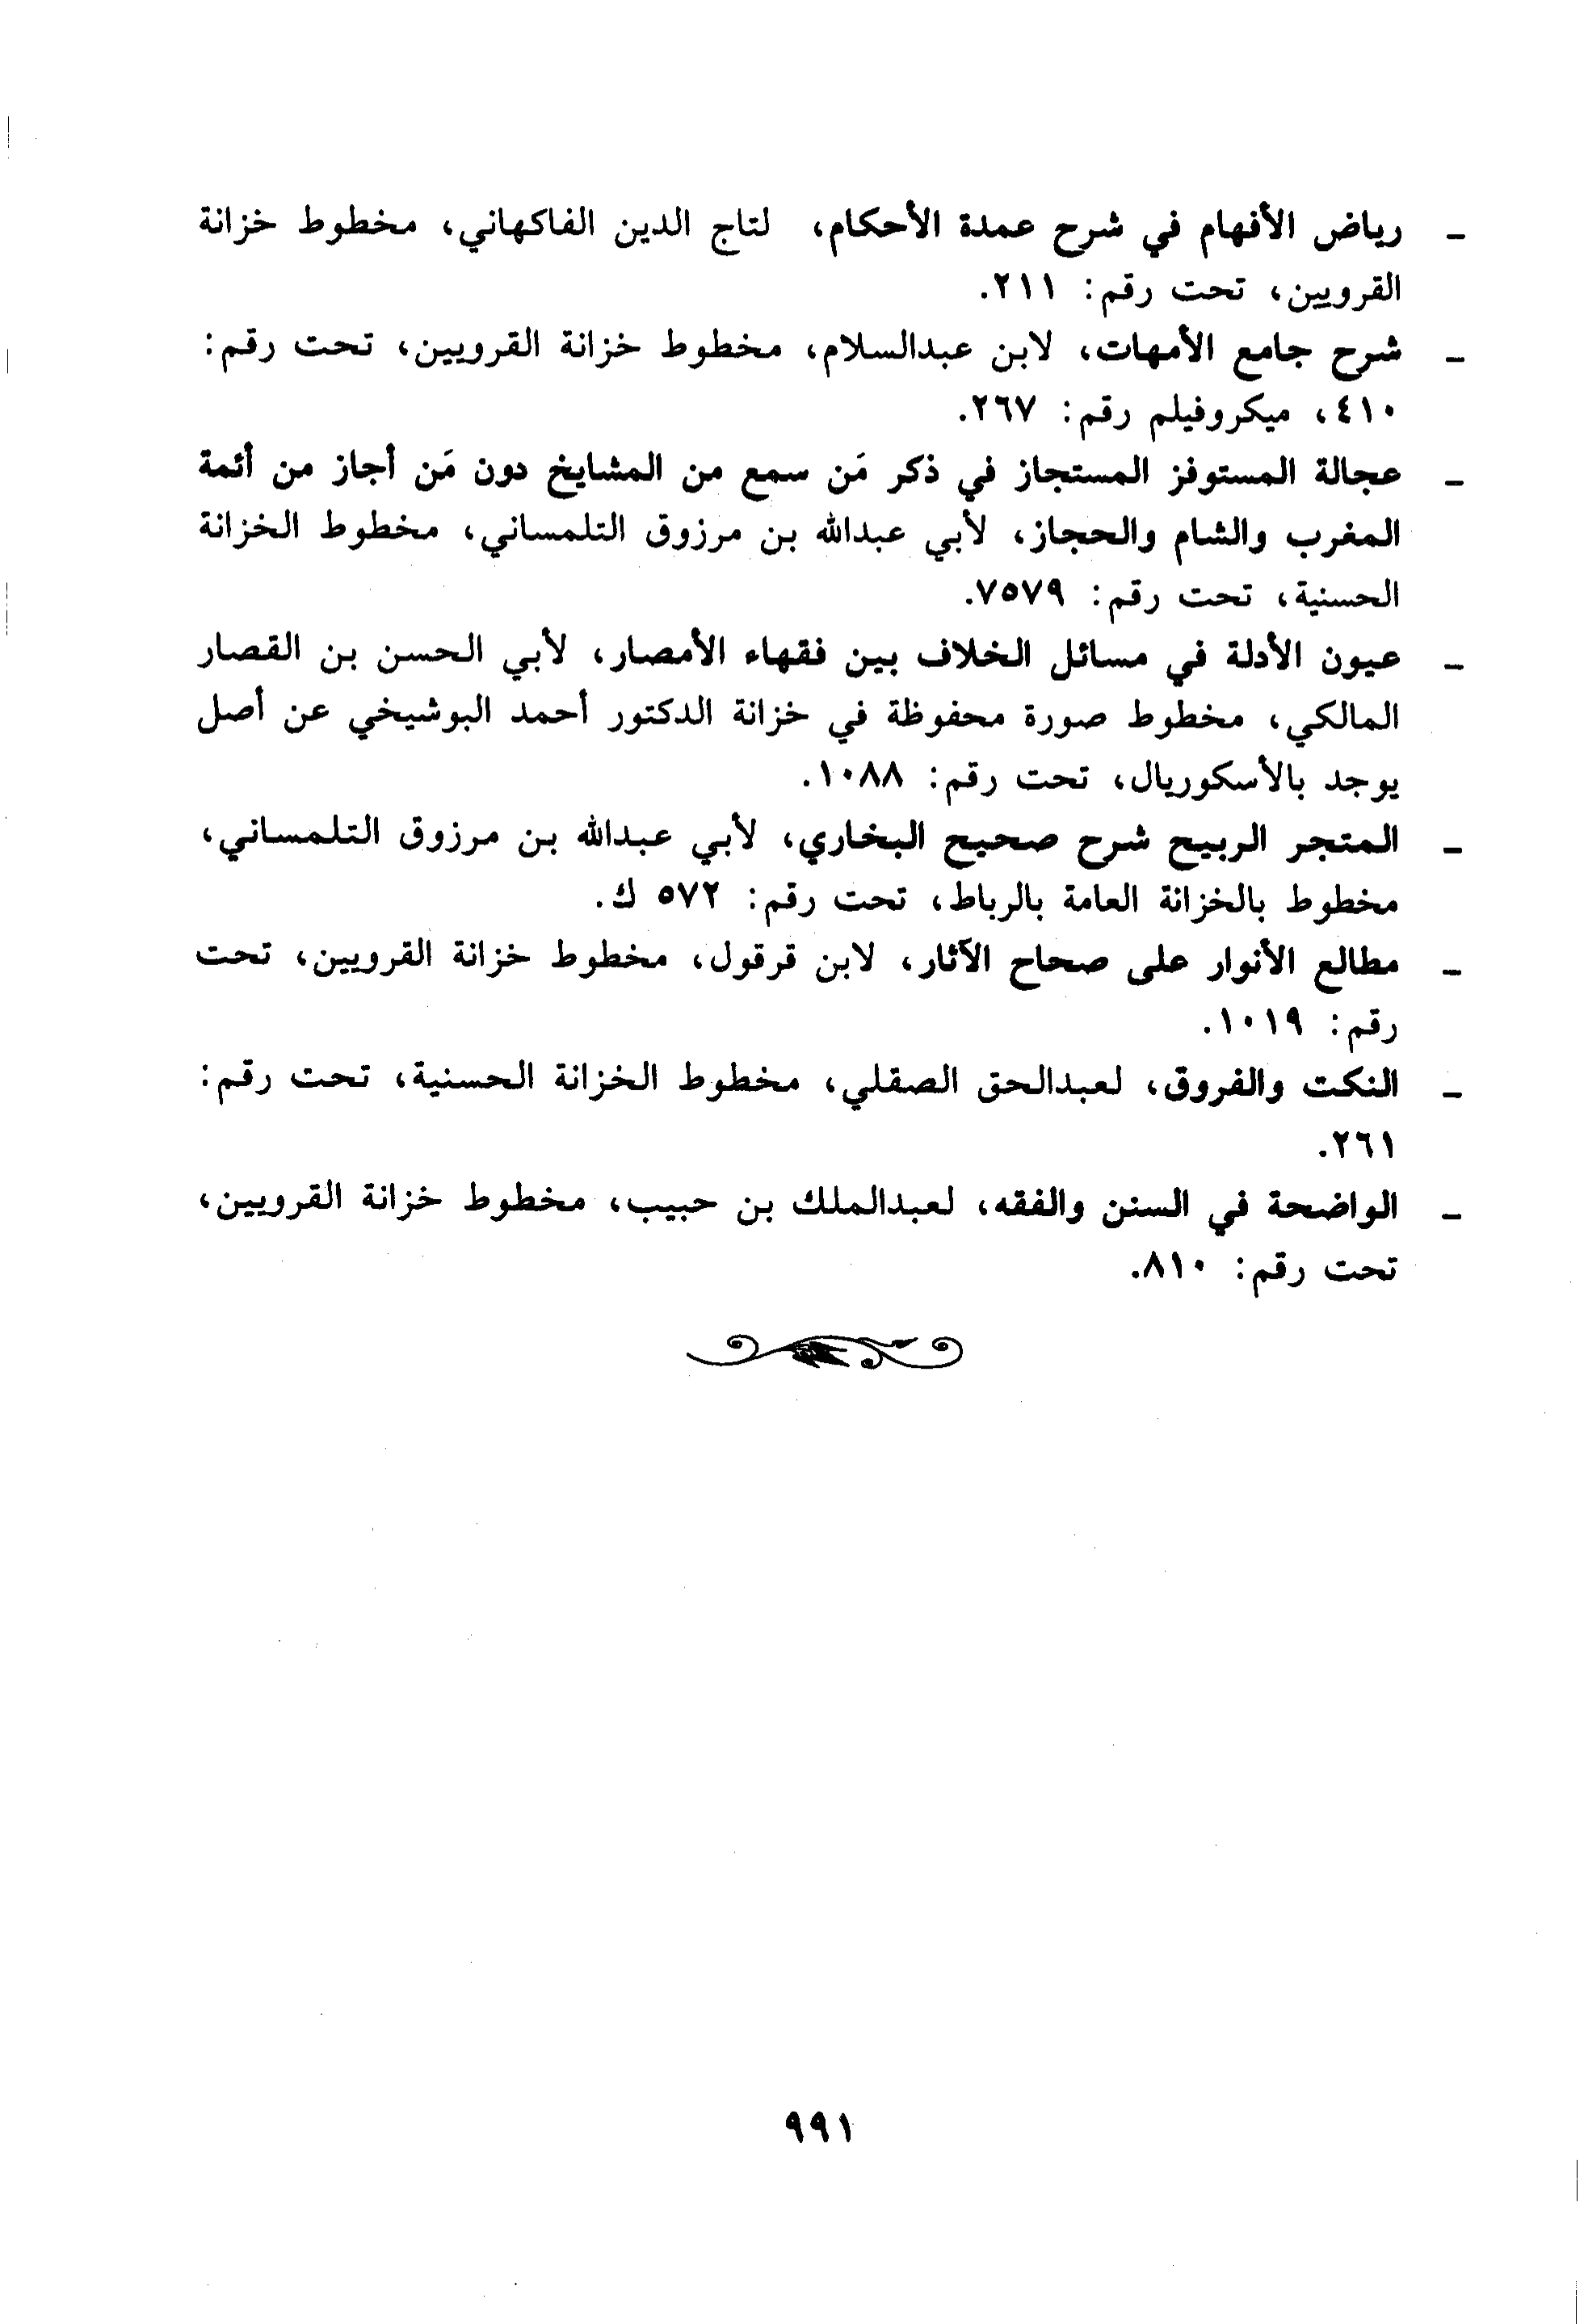 - رياض الأفهام في شرح عمدة الأحكام، لتاج الدين الفاكهاني، مخطوط خزانة
القرويين، تحت رقم: ٢١١.
- شرح جامع الأمهات، لابن عبدالسلام، مخطوط خزانة القرويين، تحت رقم:
٤١٠، ميكروفيلم رقم: ٢٦٧.
- عجالة المستوفز المستجاز في ذكر مَن سمع من المشايخ دون مَن أجاز من أئمة
المغرب والشام والحجاز، لأبي عبدالله بن مرزوق التلمساني، مخطوط الخزانة
الحسنية، تحت رقم: ٧٥٧٩.
- عيون الأدلة في مسائل الخلاف بين فقهاء الأمصار، لأبي الحسن بن القصار
المالكي، مخطوط صورة محفوظة في خزانة الدكتور أحمد البوشيخي عن أصل
يوجد بالأسكوريال، تحت رقم: ١٠٨٨.
- المتجر الربيح شرح صحيح البخاري، لأبي عبدالله بن مرزوق التلمساني،
مخطوط بالخزانة العامة بالرباط، تحت رقم: ٥٧٢ ك.
- مطالع الأنوار على صحاح الآثار، لابن قرقول، مخطوط خزانة القرويين، تحت
رقم: ١٠١٩.
- النكت والفروق، لعبدالحق الصقلي، مخطوط الخزانة الحسنية، تحت رقم:
٢٦١.
- الواضحة في السنن والفقه، لعبدالملك بن حبيب، مخطوط خزانة القرويين،
تحت رقم: ٨١٠.
٩٩١